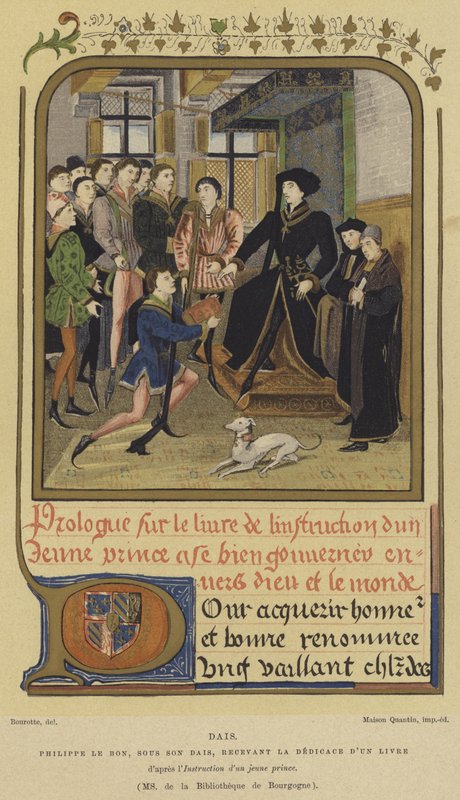 Prologue sur le liure de linstruction dun
Jeune prince ase bien gouuerner en=
uers dieu et le monde
Pour acquerir honne
et bonne renommee
Bourotte, del.
Maison Quantin, imp.-éd.
DAIS.
PHILIPPE LE BON, SOUS SON DAIS, RECEVANT LA DÉDICACE D'UN LIVRE
d'après l'Instruction d'un jeune prince.
(MS. de la Bibliothèque de Bourgogne).